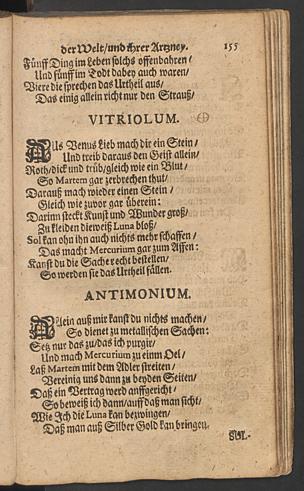 der Welt/und ihrer Artzney. 155
Fünff Ding im Leben solchs offenbahren/
Und fünff im Todt dabey auch waren/
Viere die sprechen das Urtheil aus/
Das einig allein richt nur den Strauß/
VITRIOLUM.
Aus Venus Lieb mach dir ein Stein/
Und treib daraus den Geist allein/
Roth/dick und trüb/gleich wie ein Blut/
So Martem gar zerbrechen thut/
Darauß mach wieder einen Stein/
Gleich wie zuvor gar überein:
Darinn steckt Kunst und Wunder groß/
Zu kleiden die weiß Luna bloß/
Sol kan ohn ihn auch nichts mehr schaffen/
Das macht Mercurium gar zum Affen:
Kanst du die Sache recht bestellen/
So werden sie das Urtheil fällen.
ANTIMONIUM.
Allein auß mir kanst du nichts machen/
So dienet zu metallischen Sachen:
Setz nur das zu/das ich purgir/
Und mach Mercurium zu einm Oel/
Laß Martem mit dem Adler streiten/
Vereinig uns dann zu beyden Seiten/
Daß ein Vertrag werd auffgericht/
So beweiß ich dann/auff daß man sicht/
Wie Ich die Luna kan bezwingen/
Daß man auß Silber Gold kan bringen.
SOL.